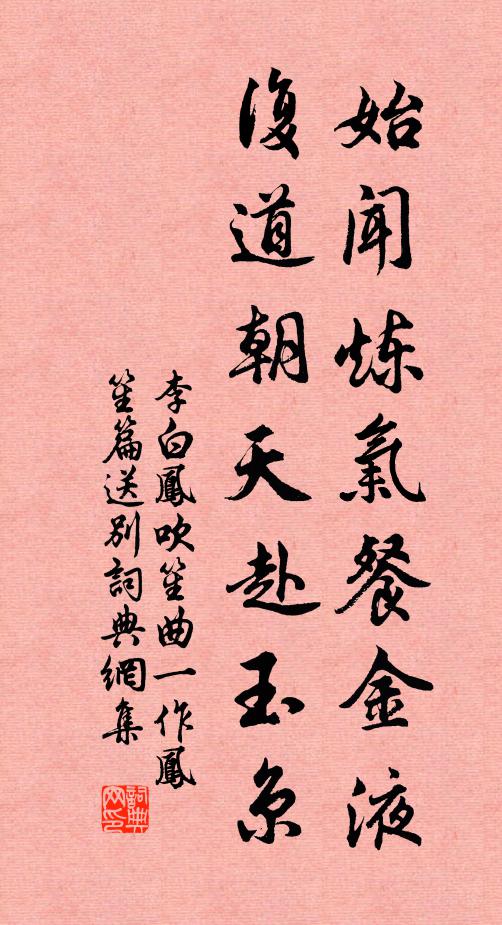 始闻炼氣餐金液
復道朝天赴玉京
李白鳳吹笙曲一作鳳
笙篇送别詞典網集
詞典网印